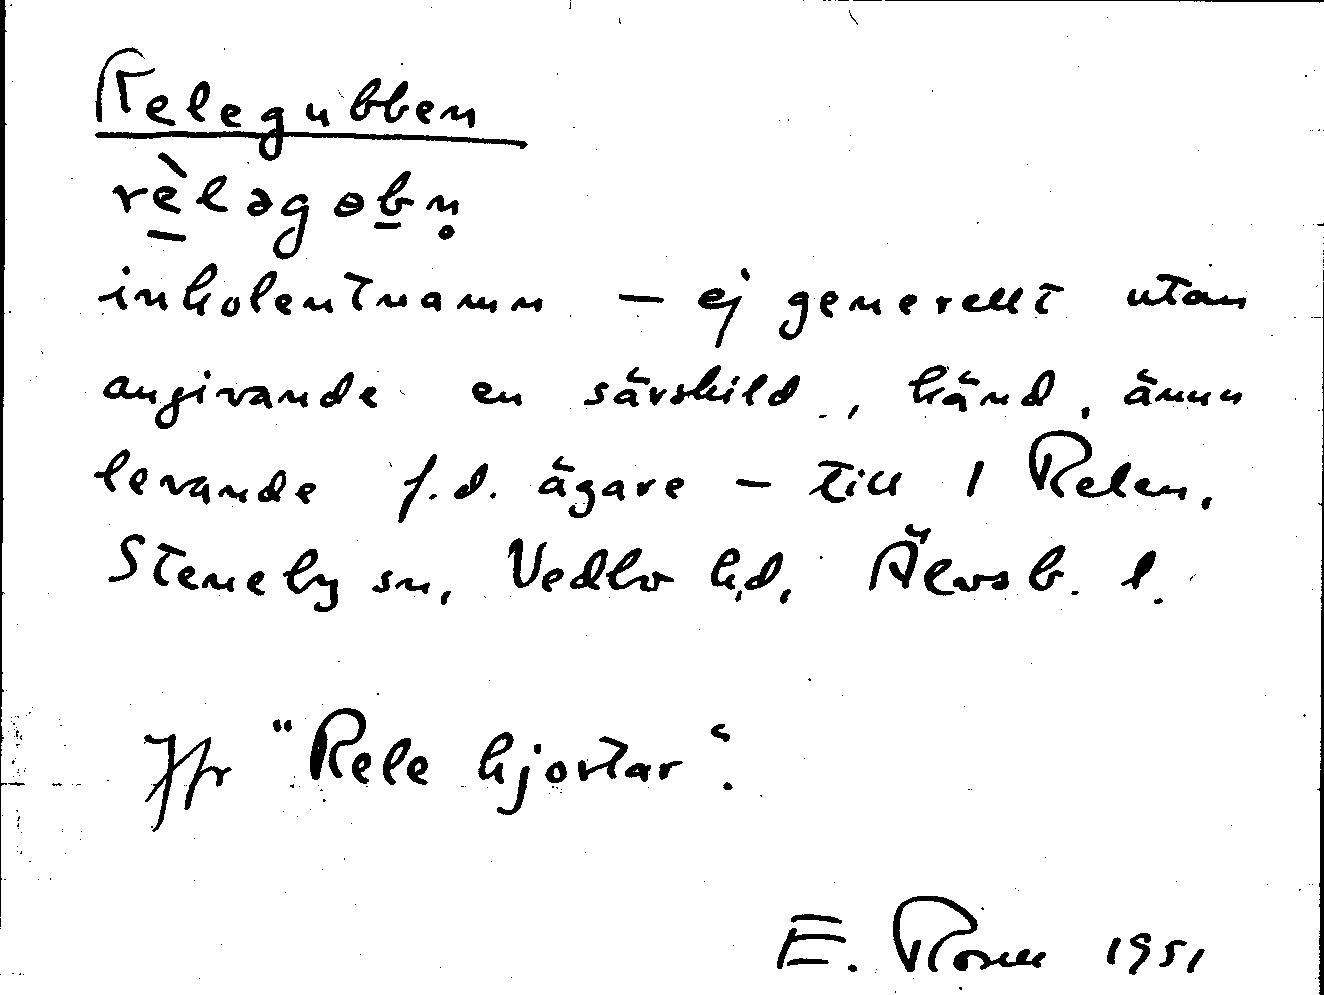 Relegubben
rèləgɵbn̥
inkolentnamn – ej generellt utan
angivande en särskild, känd, ännu
levande f.d. ägare – till 1 Relen,
Steneby sn, Vedbo hd, Älvsb. l.
Jfr "Rele hjortar".
E. Rosell 1951